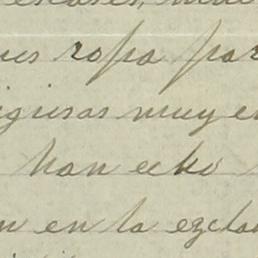 ropa par
igiosas muy en
han echo
n en la ezcla